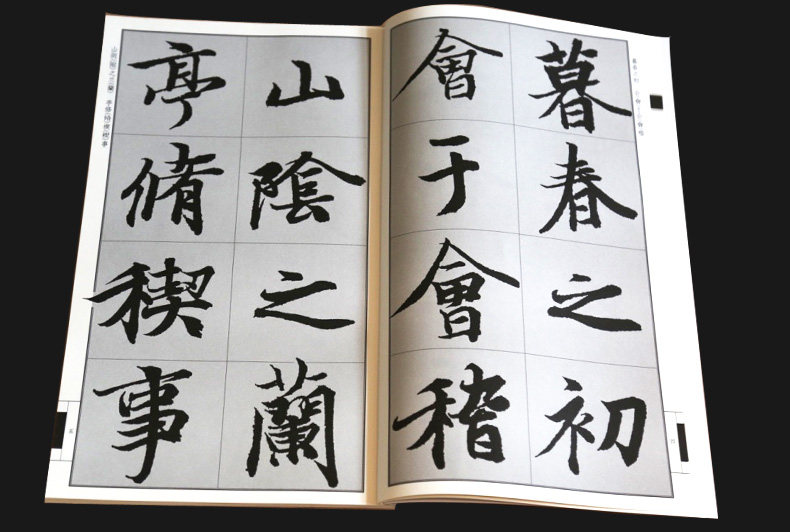 暮春之初
會于會稽
山陰之蘭
亭脩稧事